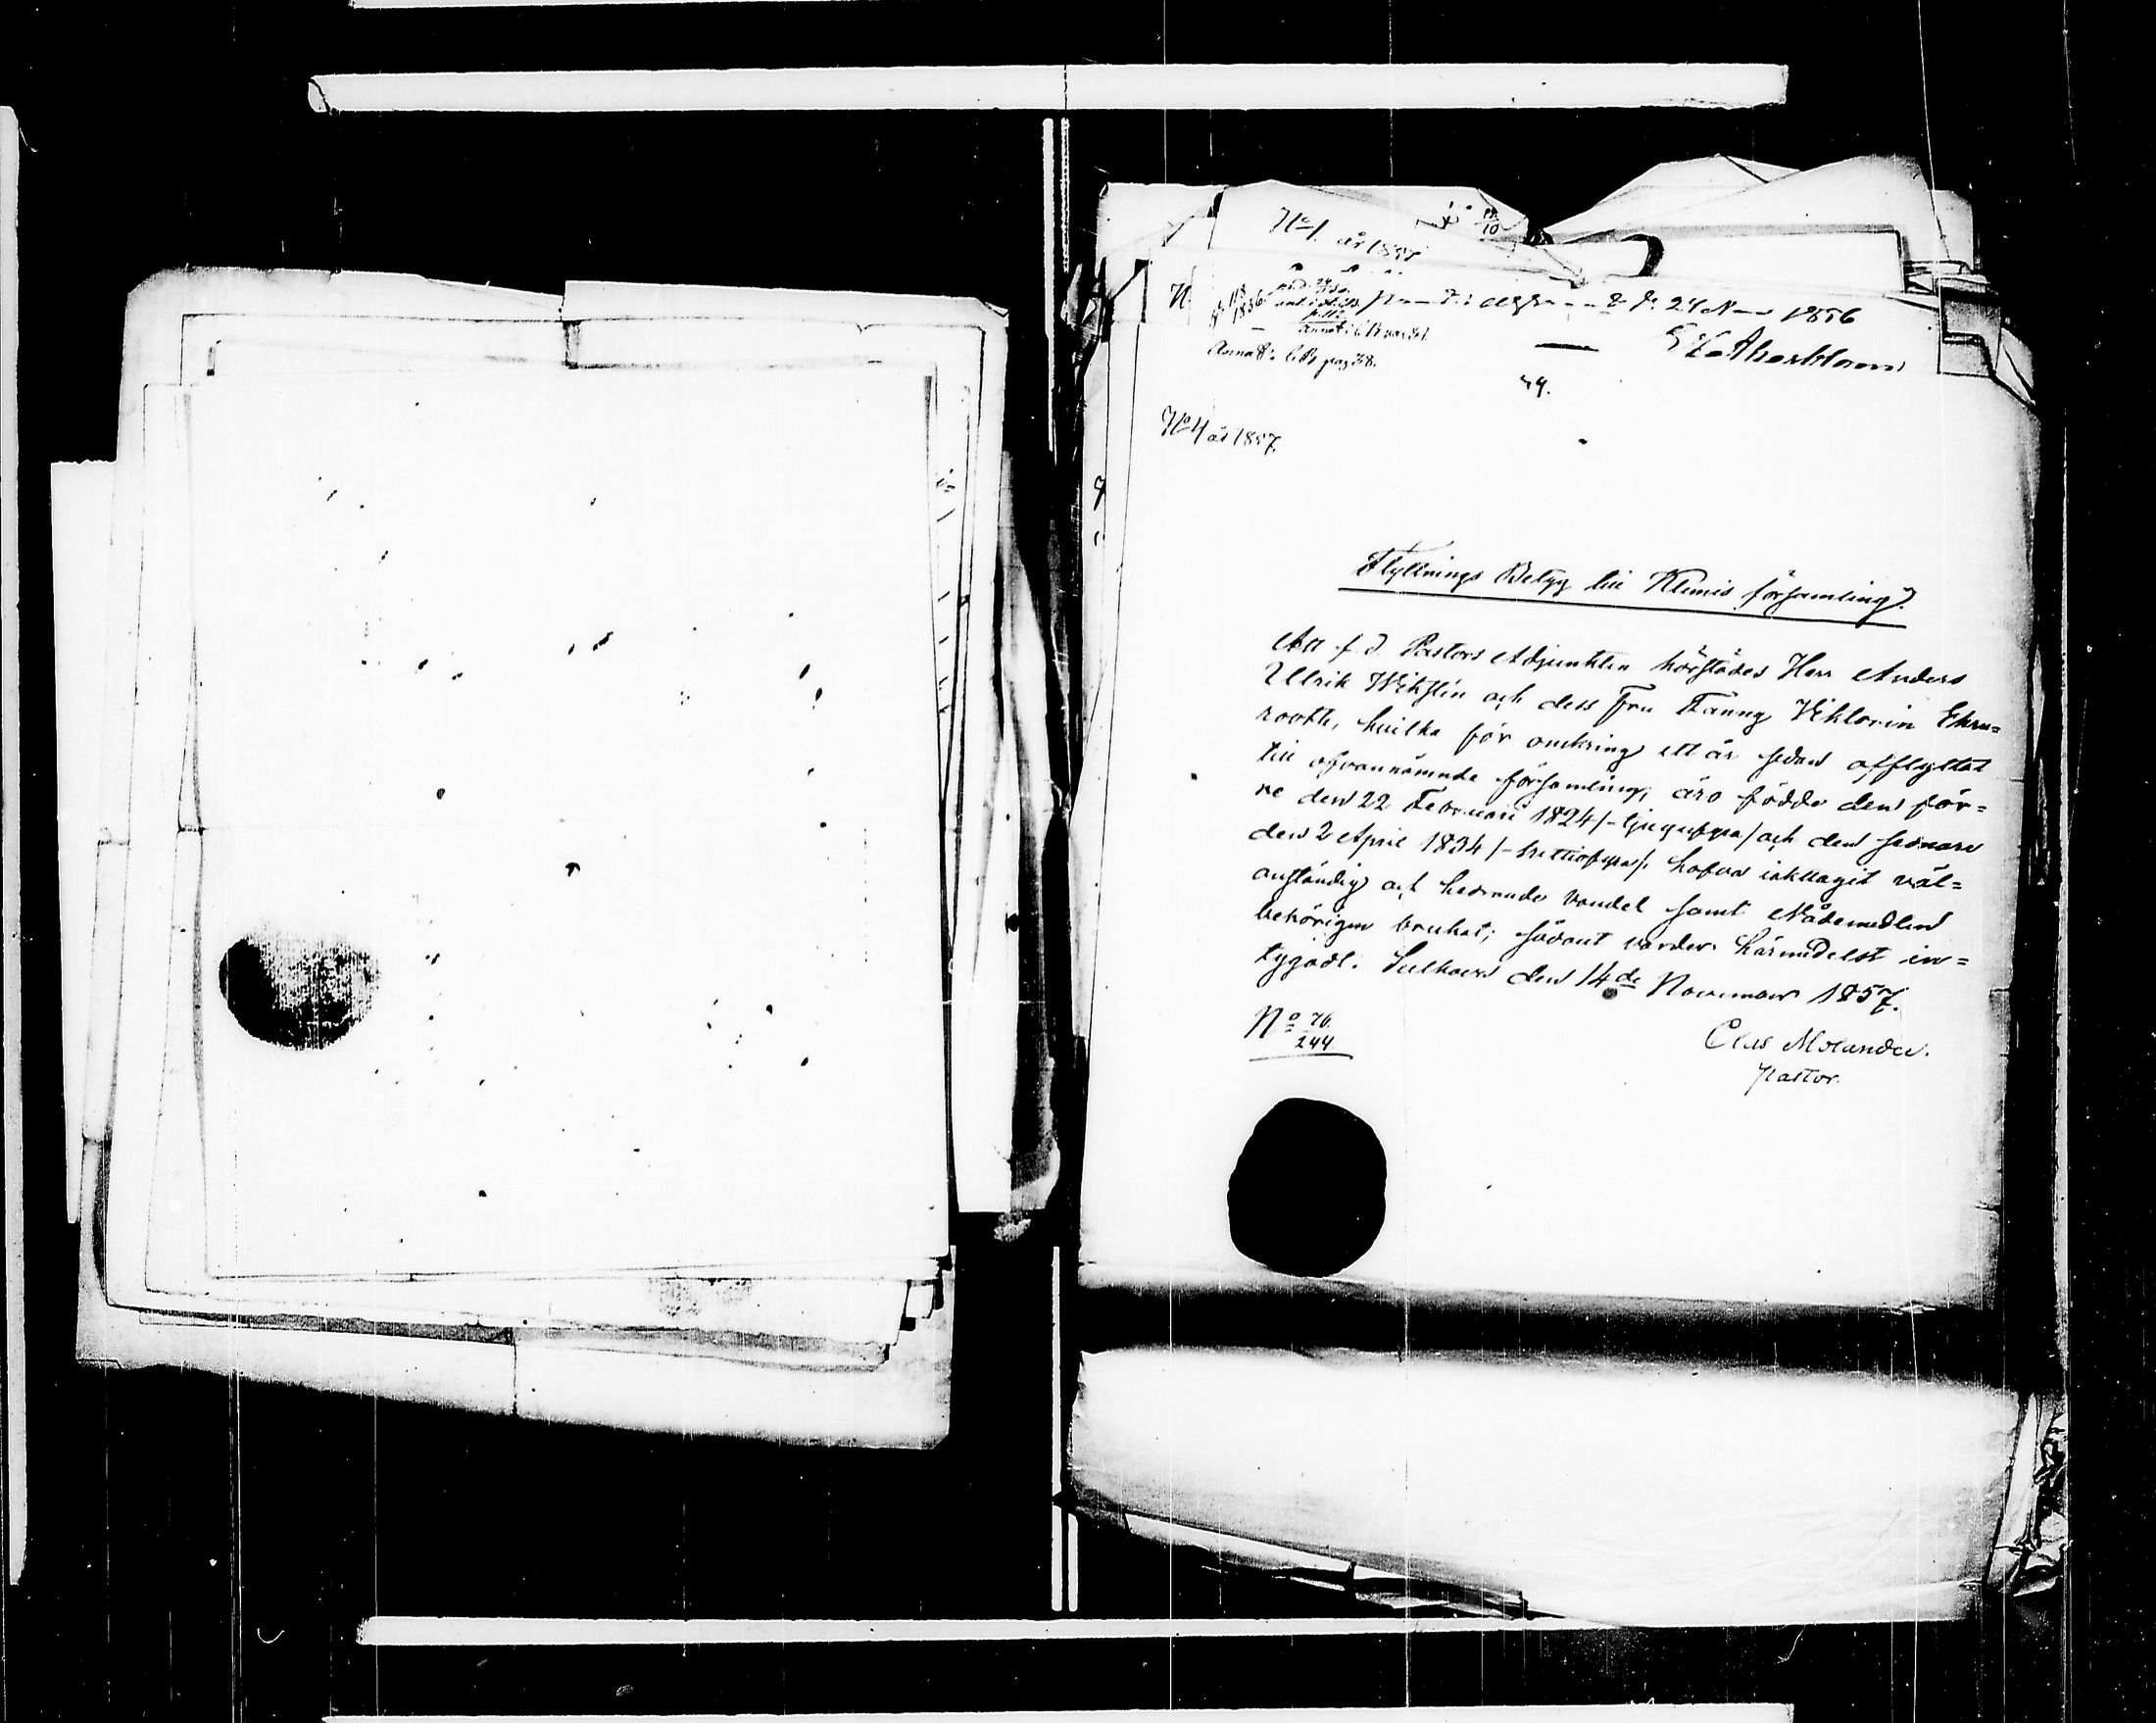 No 1. år 1857
24 N 1856
Annot. i C.B. pag 38.
49.
No 4 år 1857.
Flyttnings Betyg till Klemis församling.
Att f. d. Pastors Adjunkten härstädes Herr Anders
Ullrik Wikstén och dess Fru Fanny Viktorin Ehrn=
rooth, hvilka för omkring ett år sedan afflyttat
till ofvannämnde församling, äro födde den för=
re den 22 Februari 1824 /-tjugufyra/ och den sednare
den 2 April 1834 /-trettiofyra/, hafva iakttagit väl=
anständig och hedrande vandel samt Nådemedlen
behörigen brukat; sådant varder härmedelst in=
tygadt. Sulkava den 14de November 1857.
No 76.
244
Clas Molander.
Pastor.